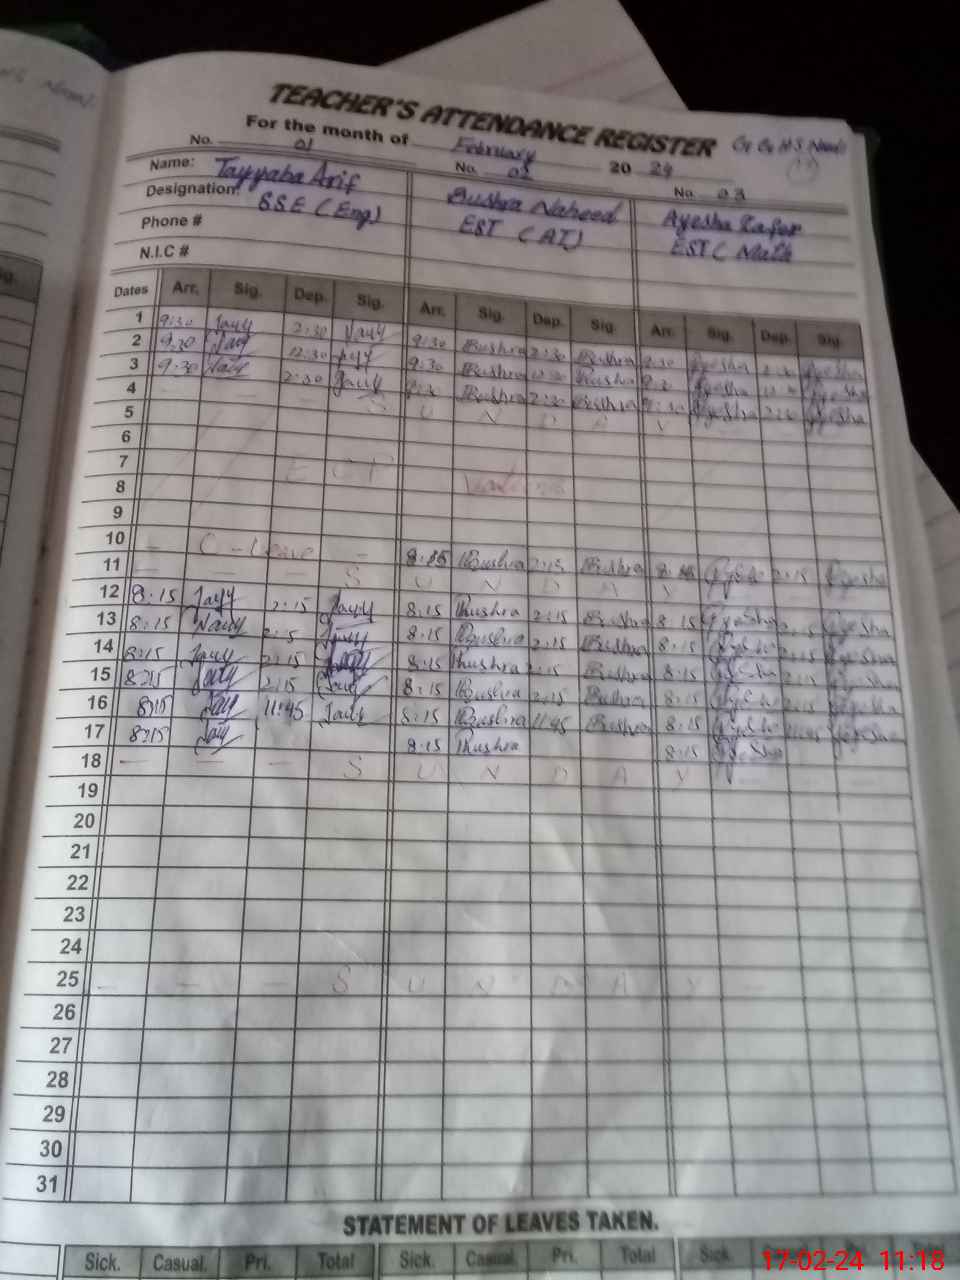 TEACHER'S ATTENDANCE REGISTER
For the month of February 2024
No. 01 No. 02 No. 03
Name: Tayyaba Arif Bushra Naheed Ayesha Zafar
Designation: SSE (Eng) EST (AT) EST ( Math
Phone #
N.I.C #
Dates Arr. Sig. Dep. Sig. Arr. Sig. Dep. Sig. Arr. Sig. Dep. Sig.
1 9:30 Tayy 2:30 Tayy 9:30 Bushra 2:30 Bushra 9:30 Ayesha Ayesha
2 9:30 Tayy 12:30 Tayy 9:30 Bushra 12:30 Bushra Ayesha Ayesha
3 9:30 Tayy 2:30 Tayy 9:30 Bushra 2:30 Bushra 9:30 Ayesha 2:30 Ayesha
4 — — — S U N D A Y
5
6
7
8
9
10 — C - Leave - 8:15 Bushra 2:15 Bushra 8:15 Ayesha 2:15 Ayesha
11 — — — S U N D A Y
12 8:15 Tayy 2:15 Tayy 8:15 Bushra 2:15 Bushra 8:15 Ayesha 2:15 Ayesha
13 8:15 Tayy 2:15 Tayy 8:15 Bushra 2:15 Bushra 8:15 Ayesha 2:15 Ayesha
14 8:15 Tayy 2:15 Tayy 8:15 Bushra 2:15 Bushra 8:15 Ayesha 2:15 Ayesha
15 8:15 Tayy 2:15 Tayy 8:15 Bushra 2:15 Bushra 8:15 Ayesha 2:15 Ayesha
16 8:15 Tayy 11:45 Tayy 8:15 Bushra 11:45 Bushra 8:15 Ayesha 11:45 Ayesha
17 8:15 Tayy 8:15 Bushra 8:15 Ayesha
18 — — — S U N D A Y
19
20
21
22
23
24
25 — — — S U N D A Y —
26
27
28
29
30
31
STATEMENT OF LEAVES TAKEN.
Sick. Casual. Pri. Total Sick. Casual Pri. Total Sick. Total
17-02-24 11:18